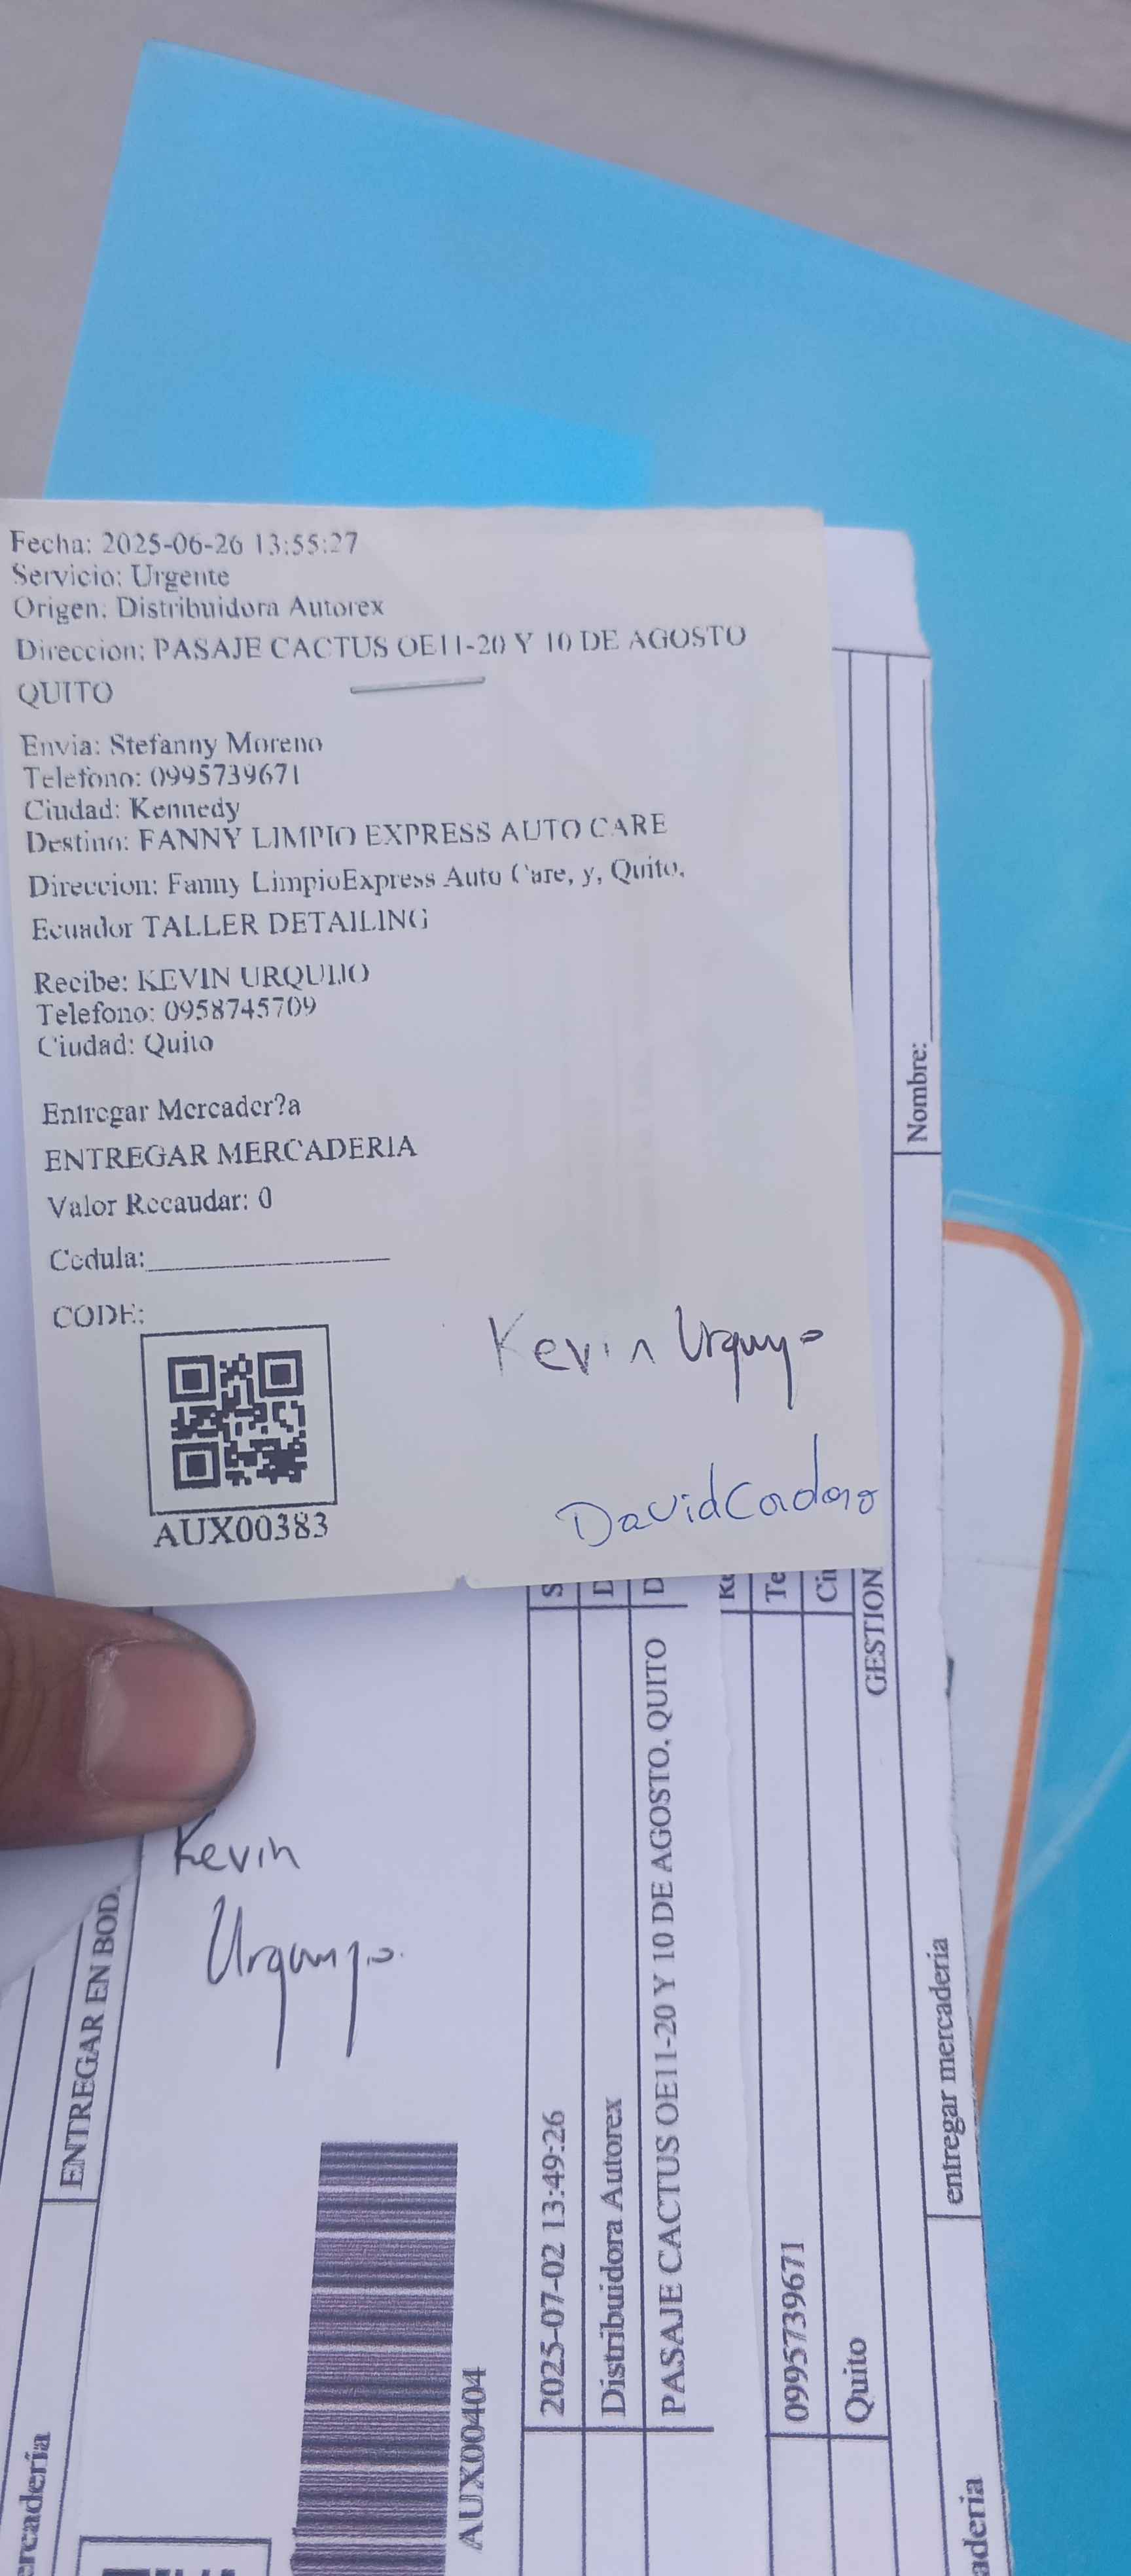 Fecha: 2025-06-26 13:55:27
Servicio: Urgente
Origen: Distribuidora Autorex
Direccion: PASAJE CACTUS OE11-20 Y 10 DE AGOSTO
QUITO
Envia: Stefanny Moreno
Telefono: 0995739671
Ciudad: Kennedy
Destino: FANNY LIMPIO EXPRESS AUTO CARE
Direccion: Fanny LimpioExpress Auto Care, y, Quito,
Ecuador TALLER DETAILING
Recibe: KEVIN URQUIJO
Telefono: 0958745709
Ciudad: Quito
Entregar Mercader?a
ENTREGAR MERCADERIA
Valor Recaudar: 0
Cedula:
CODE:
AUX00383
Kevin Urquijo
David
Kevin
Urquijo
ENTREGAR EN BOD
AUX00404
2025-07-02 13:49:26
Distribuidora Autorex
PASAJE CACTUS OE11-20 Y 10 DE AGOSTO. QUITO
0995739671
Quito
GESTION
Nombre:
entregar mercaderia